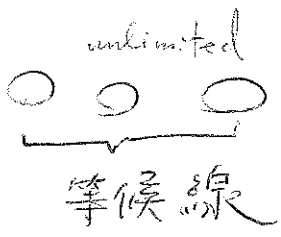 unlimited
等候線